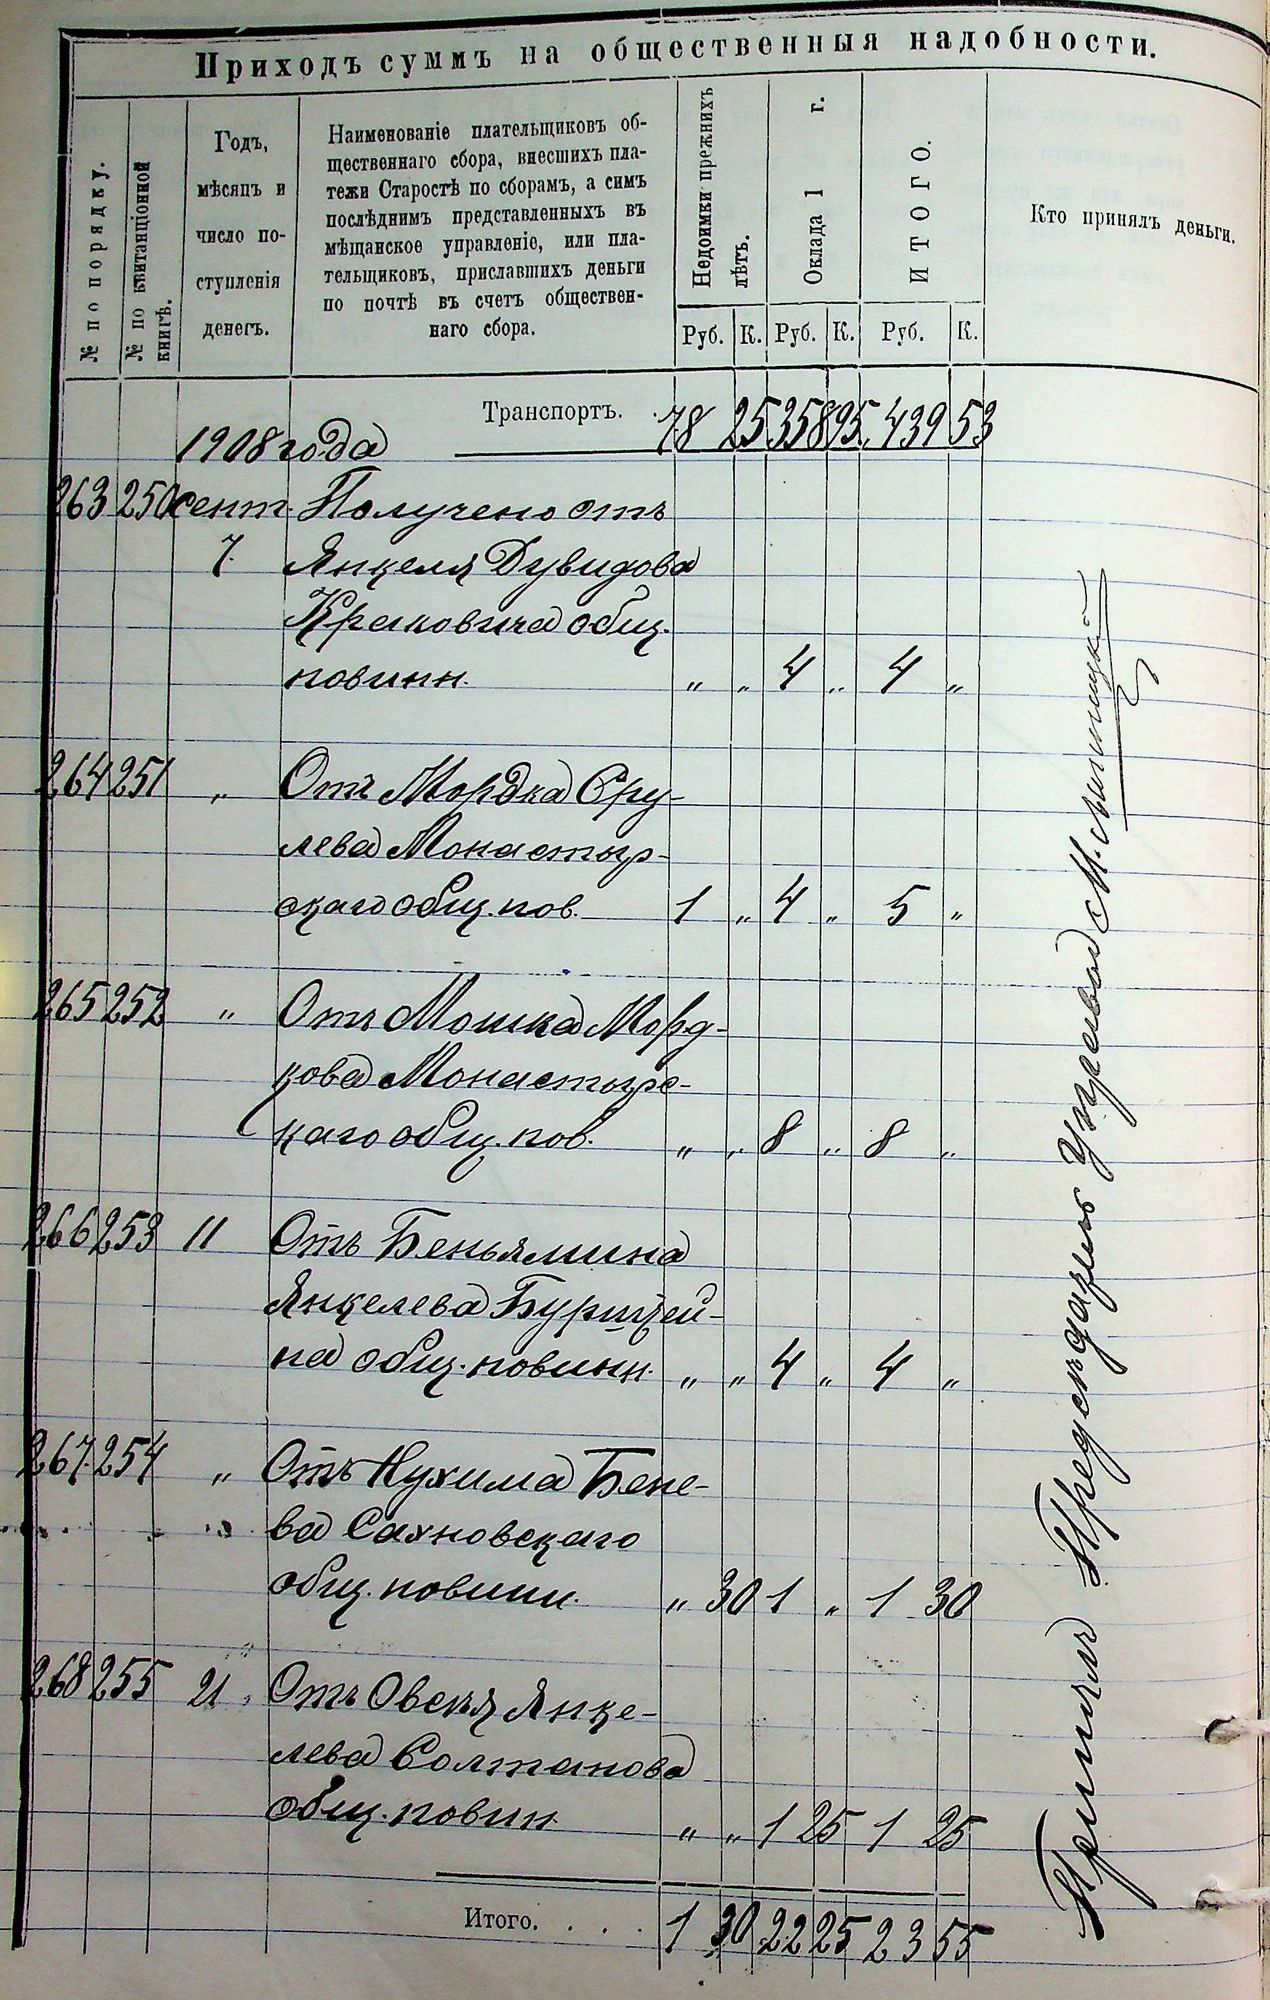 Приходъ суммъ на общественныя надобности.
№ по порядку.
№ по квитанціонной
книгѣ.
Годъ,
мѣсяцъ и
число по-
ступленія
денегъ.
Наименованіе плательщиковъ об-
щественнаго сбора, внесшихъ пла-
тежи Старостѣ по сборамъ, а симъ
послѣднимъ представленныхъ въ
мѣщанское управленіе, или пла-
тельщиковъ, приславшихъ деньги
по почтѣ въ счетъ обществен-
наго сбора.
Недоимки прежнихъ
лѣтъ.
Оклада 1 г.
ИТОГО.
Кто принялъ деньги.
Руб. К. Руб. К. Руб. К.
Транспортъ. 78 25 358 95 439 53
1908 года
263 250 сент. Получено отъ
7. Янкеля Дувидова
Краковича общ.
повинн. „ „ 4 „ 4 „
264 251 „ Отъ Мордка Сру-
лева Монастыр-
скаго общ. пов. 1 „ 4 „ 5 „
265 252 „ Отъ Мошка Морд-
кова Монастырс-
каго общ. пов. „ „ 8 „ 8 „
266 253 11 Отъ Беньямина
Янкелева Бурштей-
на общ. повинн. „ „ 4 „ 4 „
267 254 „ Отъ Нухима Бене-
ва Сахновскаго
общ. повинн. „ 30 1 „ 1 30
268 255 21 Отъ Овсея Янке-
лева Солтанова
общ. повин. „ „ 1 25 1 25
Итого. . . . 1 30 22 25 23 55
Принялъ Предсѣдатель Управы М.